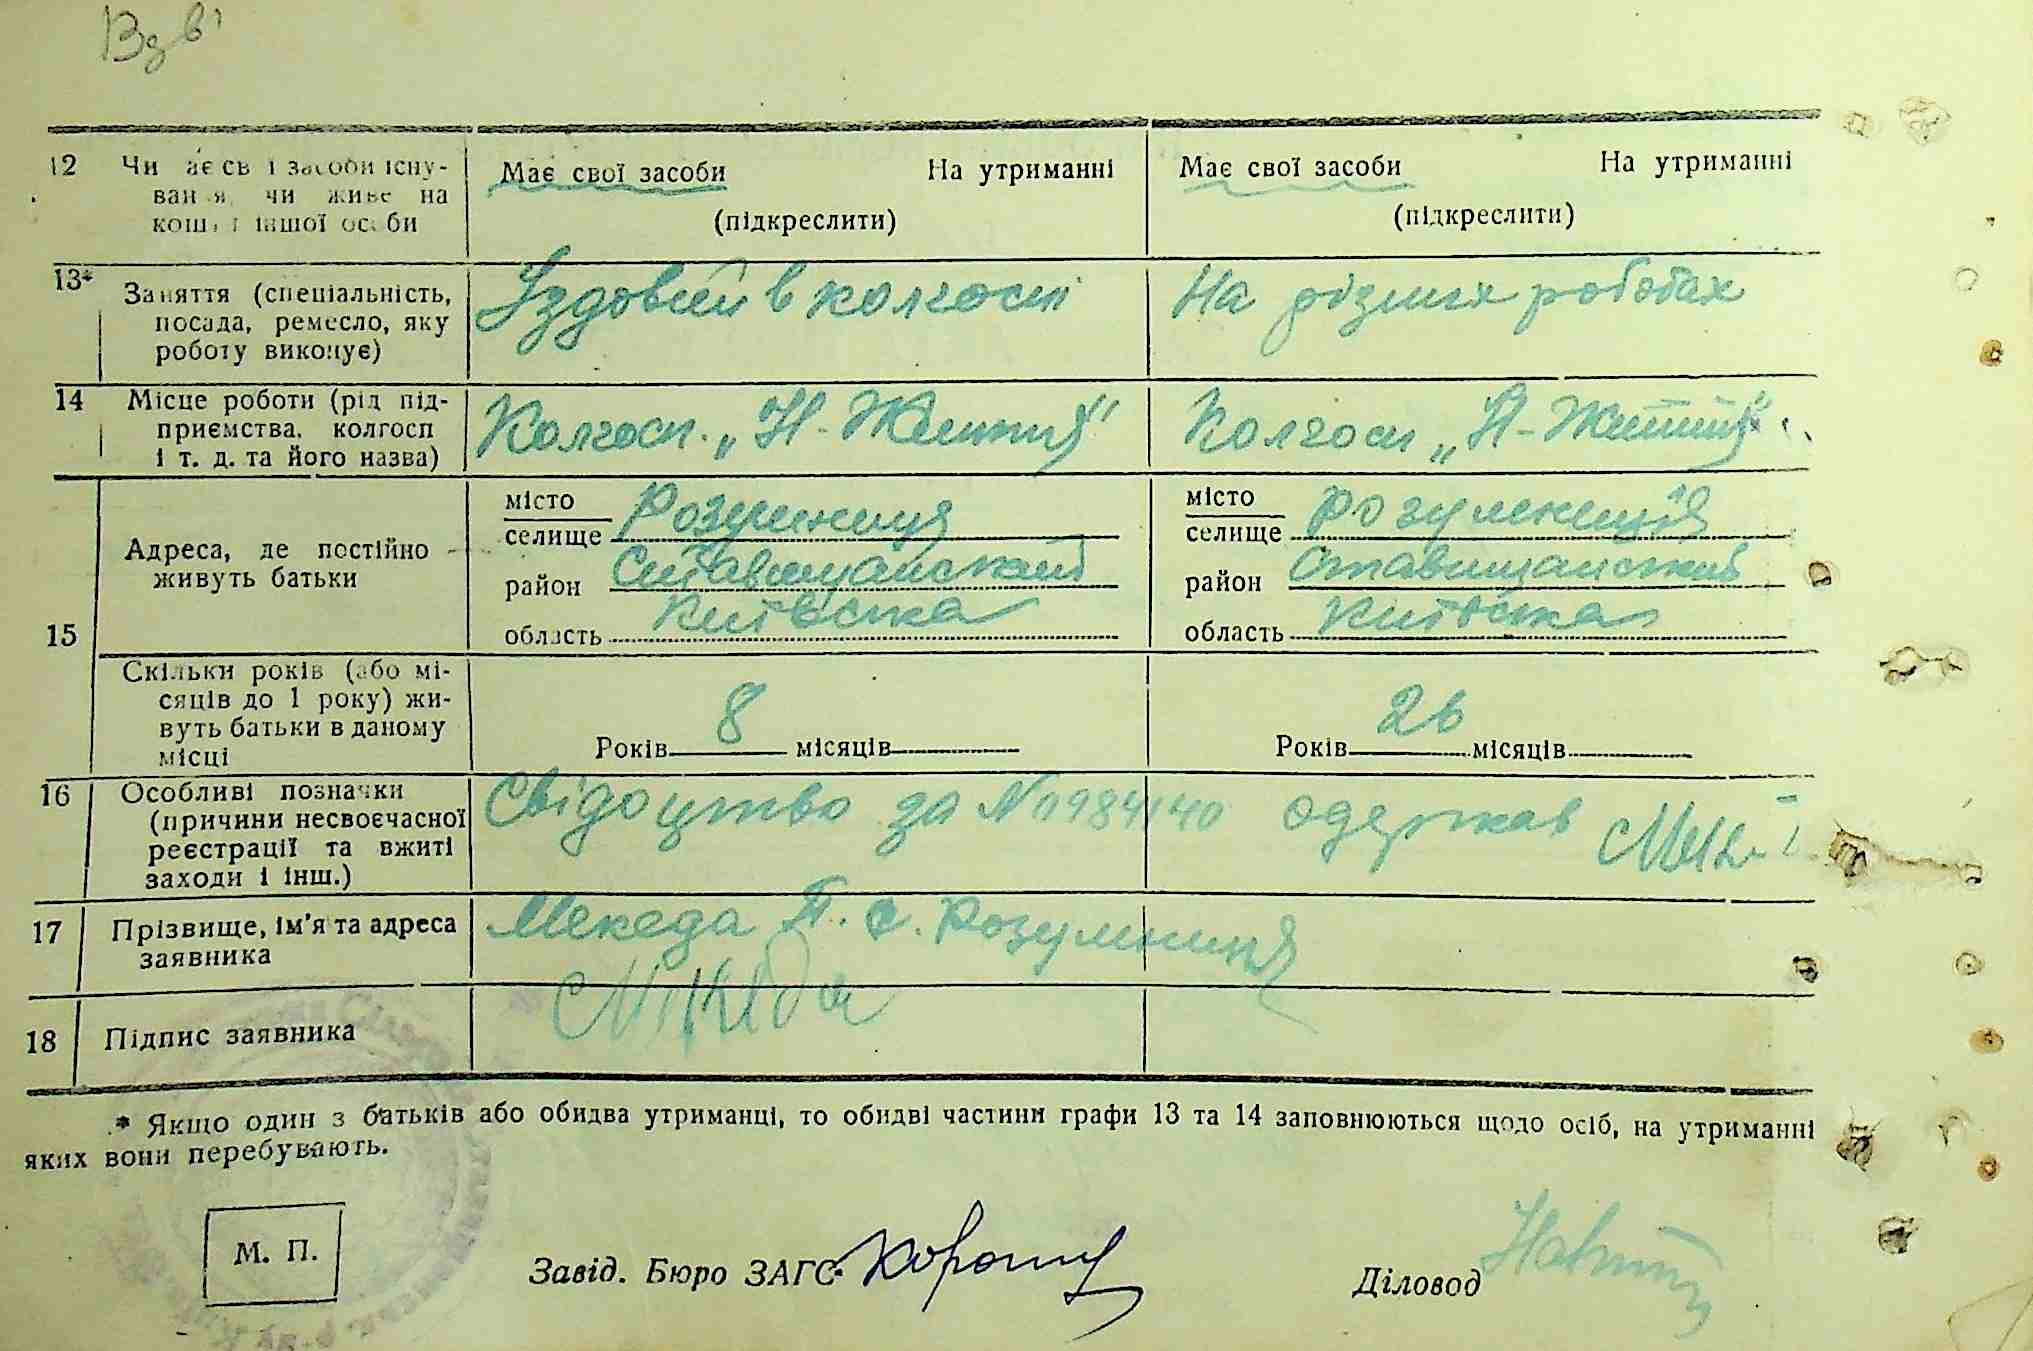 12 Чи має свої засоби існу-
вання, чи живе на
кошти іншої особи
Має свої засоби На утриманні
(підкреслити)
Має свої засоби На утриманні
(підкреслити)
13* Заняття (спеціальність,
посада, ремесло, яку
роботу виконує)
Їздовий в колгоспі
На різних роботах
14 Місце роботи (рід під-
приємства, колгосп
і т. д. та його назва)
Колгосп. „Н-Життя"
Колгосп „Н-Життя"
15
Адреса, де постійно
живуть батьки
місто
селище Розумниця
район Ставищанський
область Київська
місто
селище Розумниця
район Ставищанський
область Київська
Скільки років (або мі-
сяців до 1 року) жи-
вуть батьки в даному
місці
Років 8 місяців
Років 26 місяців
16 Особливі позначки
(причини несвоєчасної
реєстрації та вжиті
заходи і інш.)
Свідоцтво за № 984140 одержав
17 Прізвище, ім'я та адреса
заявника
Мекеда П. с. Розумниця
18 Підпис заявника
Мекеда
* Якщо один з батьків або обидва утриманці, то обидві частини графи 13 та 14 заповнюються щодо осіб, на утриманні
яких вони перебувають.
М. П.
Завід. Бюро ЗАГС
Діловод